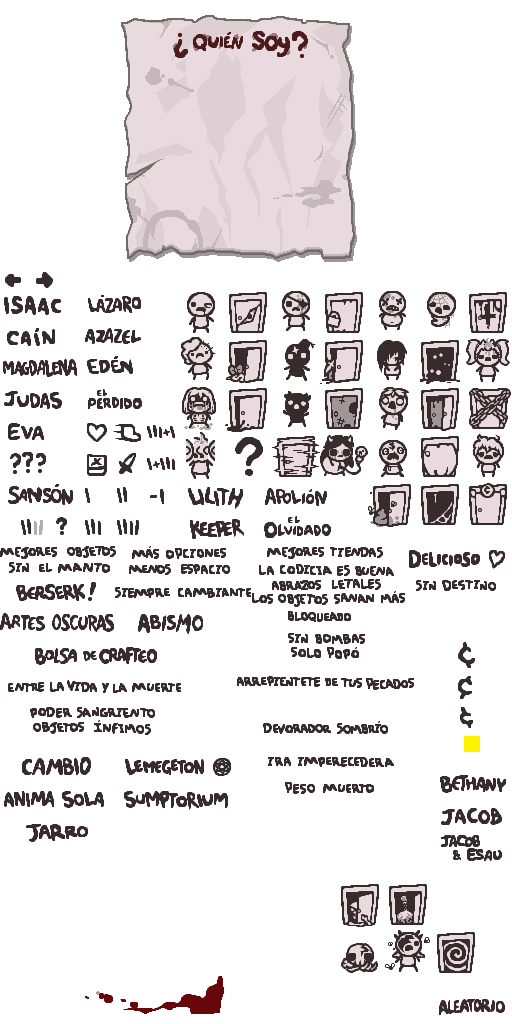 ¿QUIÉN SOY?
ISAAC LÁZARO
CAÍN AZAZEL
MAGDALENA EDÉN
JUDAS EL PERDIDO
EVA
???
?
SANSÓN LILITH APOLIÓN
? KEEPER EL OLVIDADO
MEJORES OBJETOS
SIN EL MANTO
MÁS OPCIONES
MENOS ESPACIO
MEJORES TIENDAS
LA CODICIA ES BUENA
DELICIOSO
BERSERK!
SIEMPRE CAMBIANTE
ABRAZOS LETALES
LOS OBJETOS SANAN MÁS
SIN DESTINO
ARTES OSCURAS ABISMO
BLOQUEADO
SIN BOMBAS
SOLO POPÓ
BOLSA DE CRAFTEO
¢
ENTRE LA VIDA Y LA MUERTE
ARREPIENTETE DE TUS PECADOS
¢
PODER SANGRIENTO
OBJETOS ÍNFIMOS
¢
DEVORADOR SOMBRÍO
CAMBIO LEMEGETON
IRA IMPERECEDERA
PESO MUERTO
BETHANY
ANIMA SOLA SUMPTORIUM
JACOB
JARRO
JACOB
& ESAU
ALEATORIO